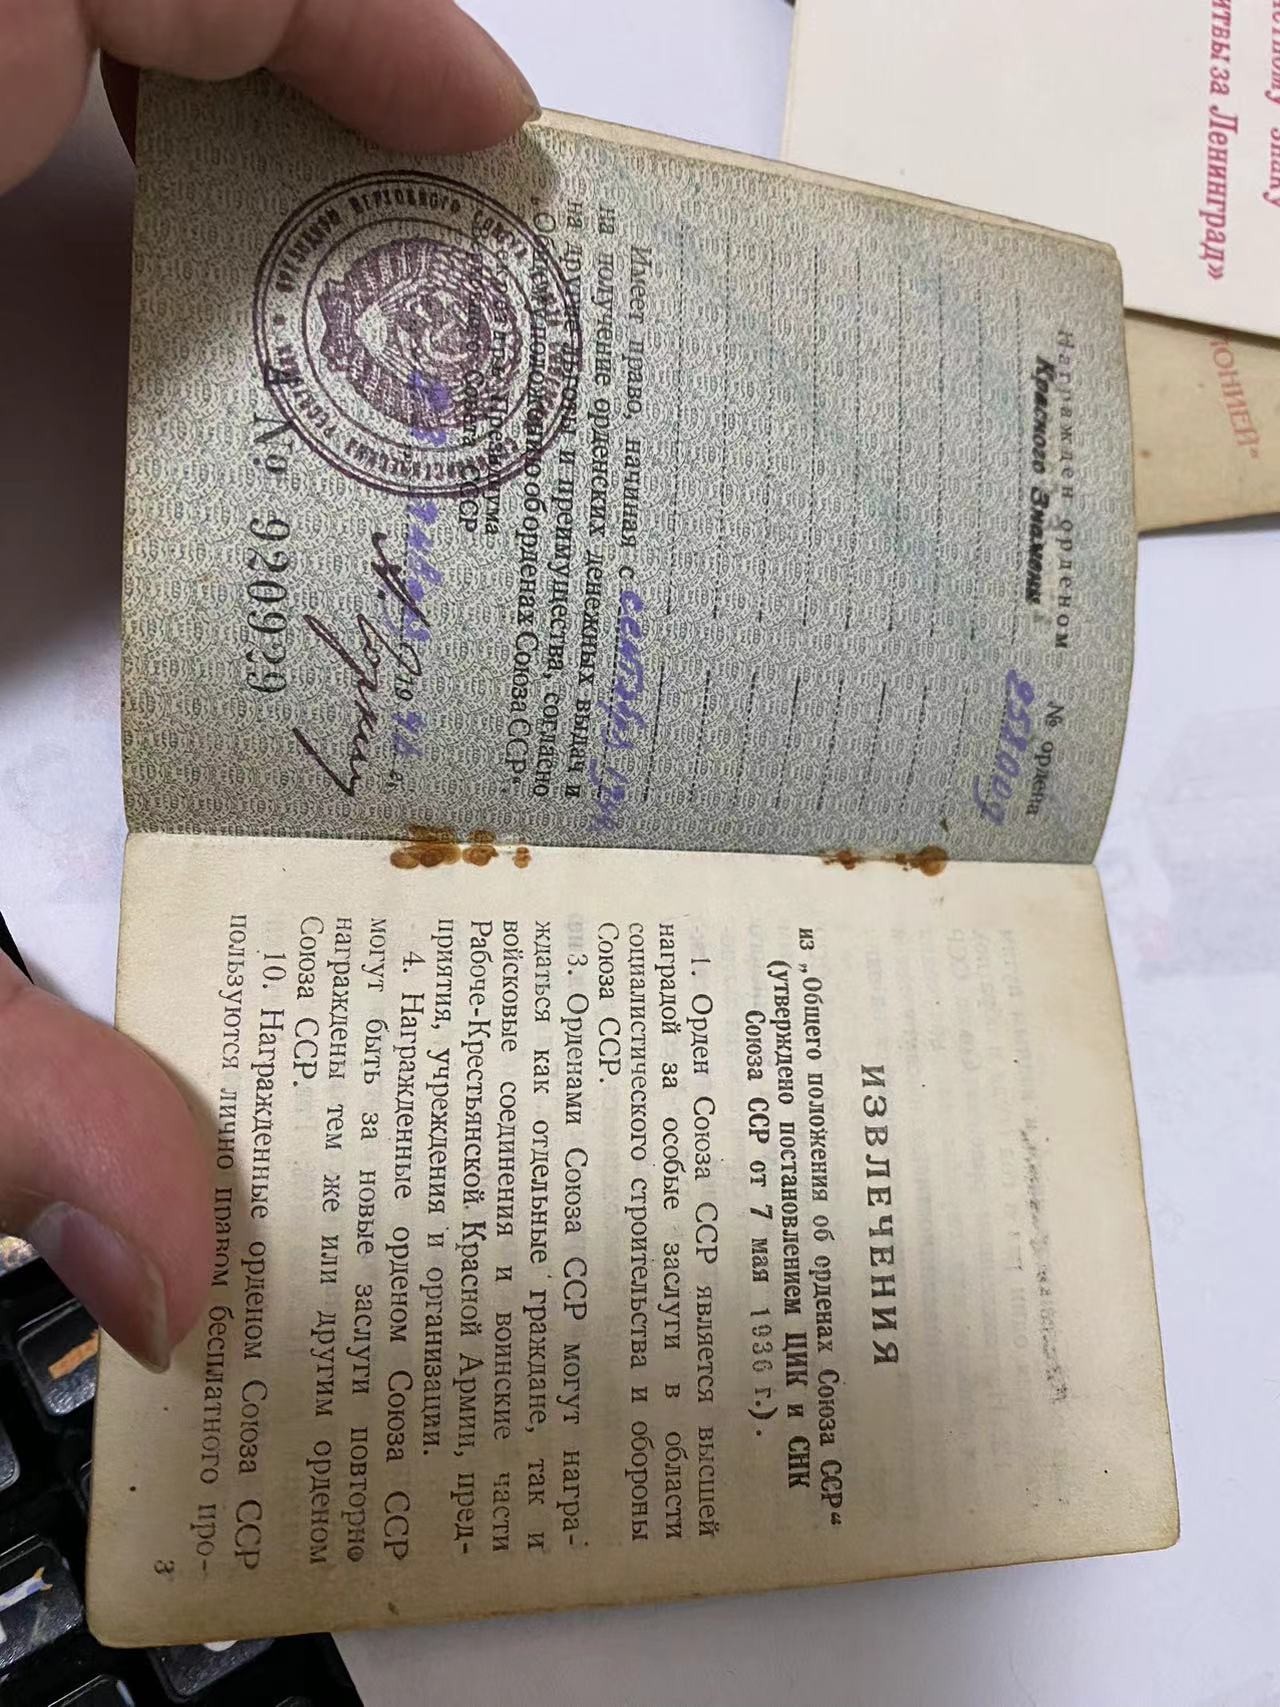 Награжден орденом № ордена
Красного Знамени 258009
Имеет право, начиная с сентября
на получение орденских денежных выдач и
на другие льготы и преимущества, согласно
„Общему положению об орденах Союза ССР“.
Президиума
Верховного Совета СССР
А. Горкин
А № 920999
ИЗВЛЕЧЕНИЯ
из „Общего положения об орденах Союза ССР“
(утверждено постановлением ЦИК и СНК
Союза ССР от 7 мая 1936 г.).
1. Орден Союза ССР является высшей
наградой за особые заслуги в области
социалистического строительства и обороны
Союза ССР.
3. Орденами Союза ССР могут награ-
ждаться как отдельные граждане, так и
войсковые соединения и воинские части
Рабоче-Крестьянской Красной Армии, пред-
приятия, учреждения и организации.
4. Награжденные орденом Союза ССР
могут быть за новые заслуги повторно
награждены тем же или другим орденом
Союза ССР.
10. Награжденные орденом Союза ССР
пользуются лично правом бесплатного про-
3
знаку
битвы за Ленинград»
ПОНИЕЙ"